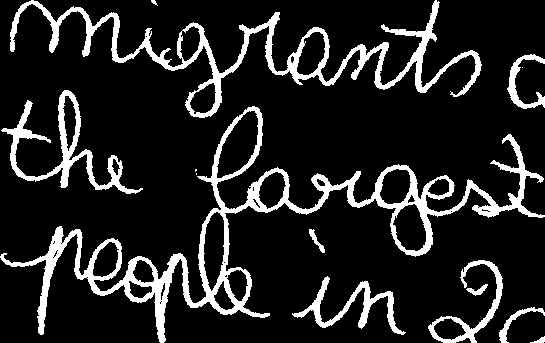 migrants
the largest
people in 20